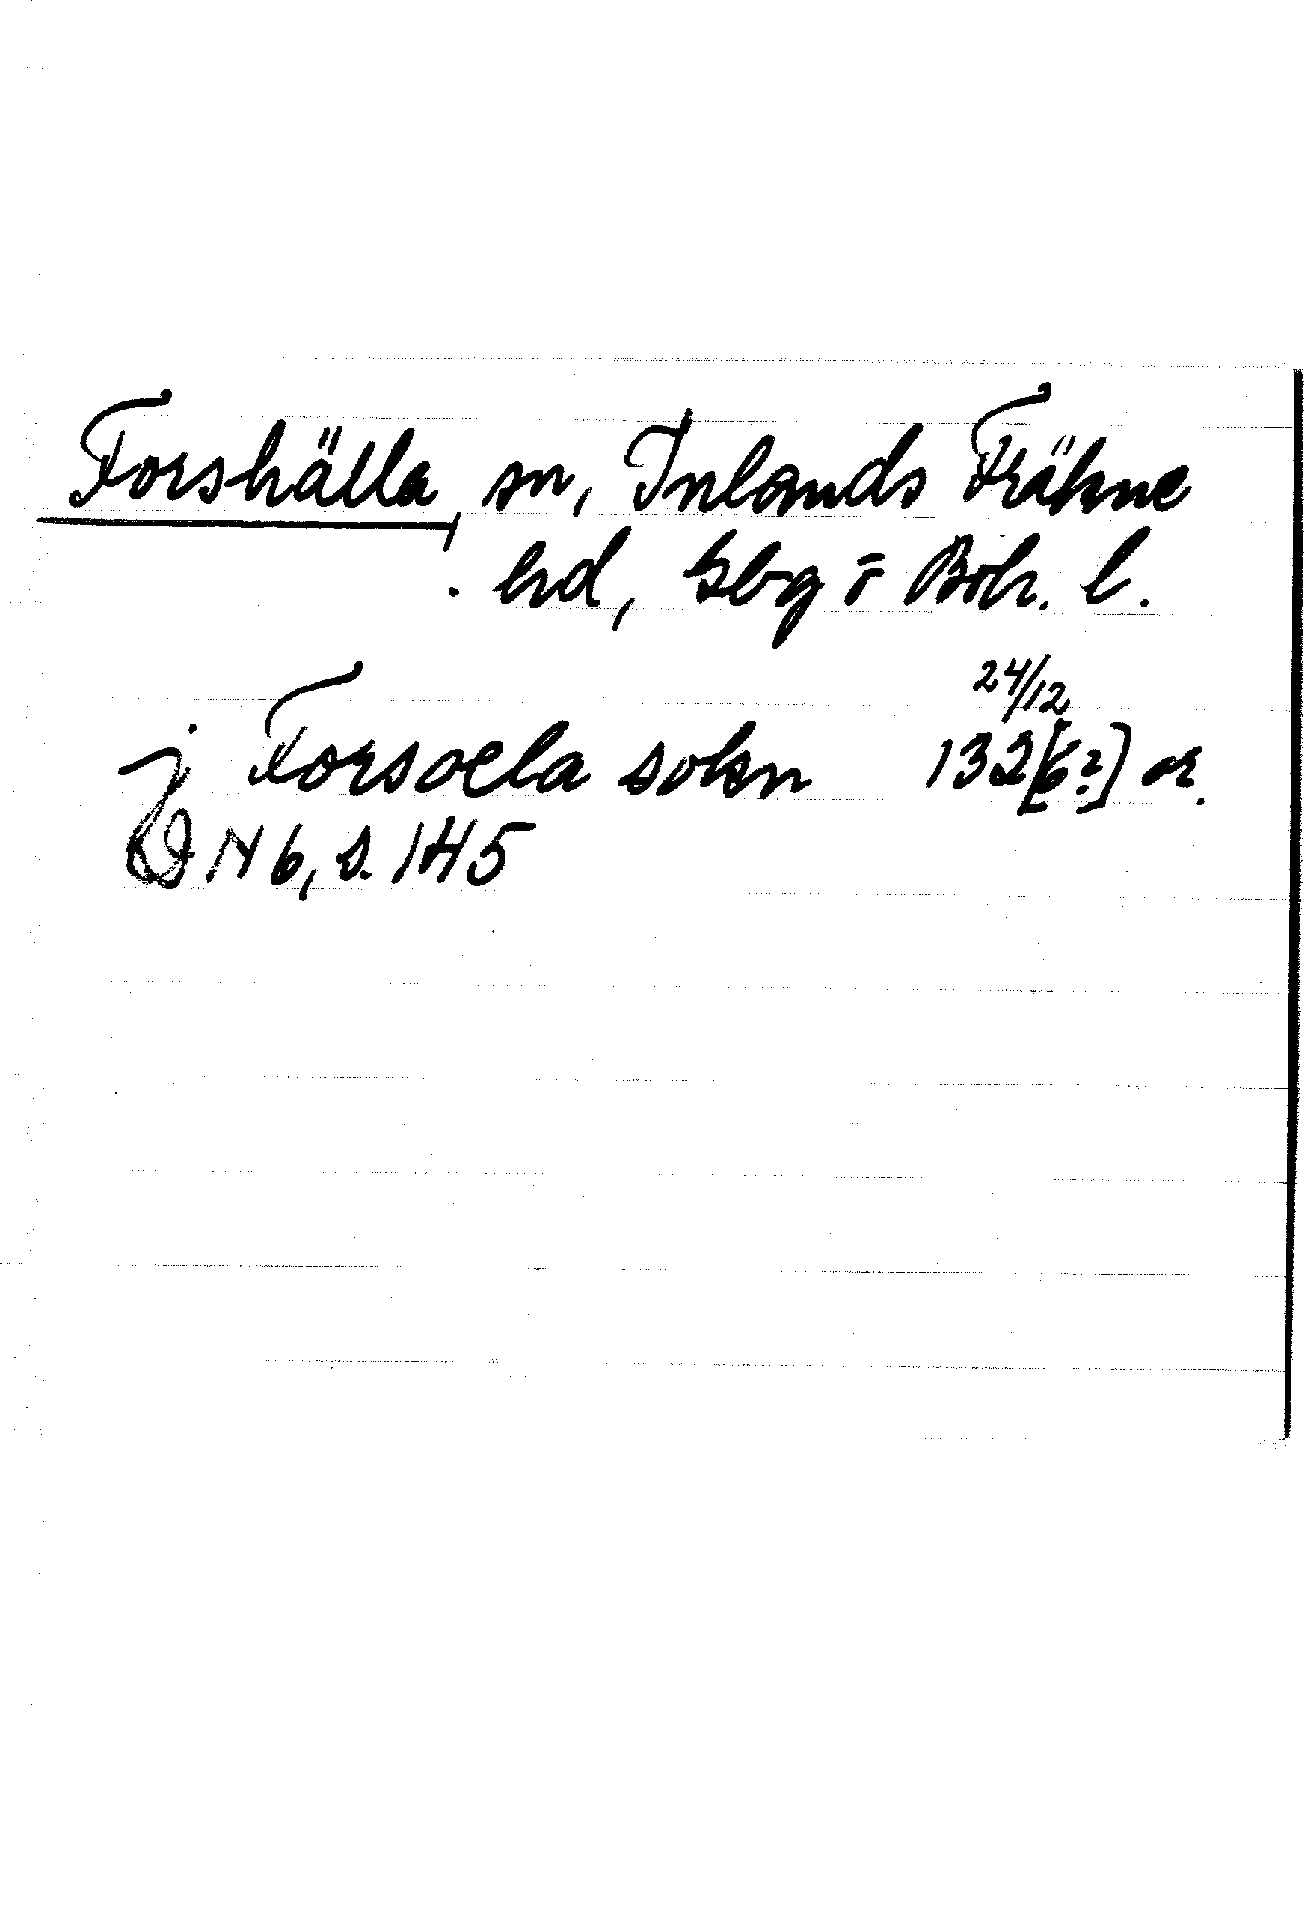 Forshälla, sn, Inlands Fräkne
hd, Gbg o Boh. l.
j Forsoela sokn 24/12 132[6?] or.
DN 6, s. 145